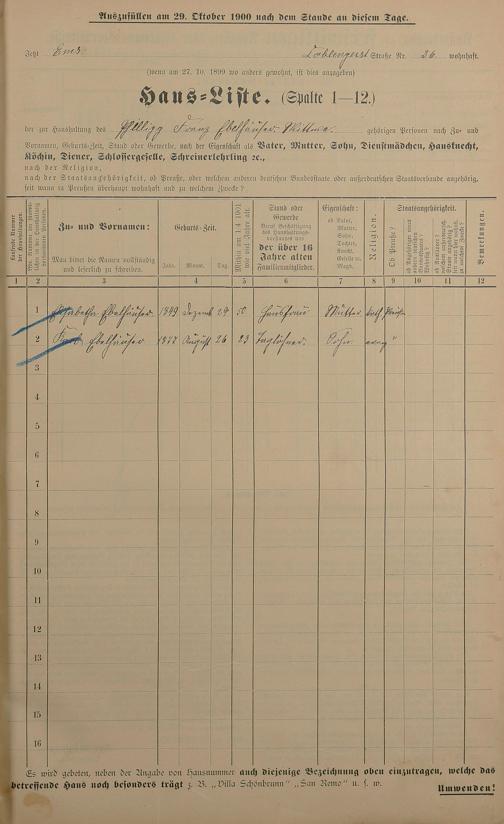 Auszufüllen am 29. Oktober 1900 nach dem Stande an diesem Tage.
Jetzt Ems Straße Nr. 26. wohnhaft.
(wenn am 27. 10. 1899 wo anders gewohnt, ist dies anzugeben)
Haus-Liste. (Spalte 1—12.)
der zur Haushaltung des Franz Ebelhäuser Wittwe. gehörigen Personen nach Zu- und
Vornamen, Geburts-Zeit, Stand oder Gewerbe, nach der Eigenschaft als Vater, Mutter, Sohn, Dienstmädchen, Hausknecht,
Köchin, Diener, Schlossergeselle, Schreinerlehrling &c.,
nach der Religion,
nach der Staatsangehörigkeit, ob Preuße, oder welchem anderen deutschen Bundesstaate oder außerdeutschen Staatsverbande angehörig,
seit wann in Preußen überhaupt wohnhaft und zu welchem Zwecke?
Zu- und Vornamen:
Man bittet die Namen vollständig
und leserlich zu schreiben.
Geburts-Zeit.
Jahr. Monat. Tag.
Stand oder
Gewerbe
der über 16
Jahre alten
Familienmitglieder.
Eigenschaft:
ob Vater,
Mutter,
Sohn,
Tochter,
Knecht,
Geselle u.
Magd.
Religion.
Staatsangehörigkeit.
Ob Preuße?
Bemerkungen.
1 2 3 4 5 6 7 8 9 10 11 12
1 Elisabetha Ebelhäuser 1849 Dezemb 29 50 Hausfrau Mutter kath
2 Ebelhäuser 1877 August 26 23 Taglöhner. Sohn evang "
3
4
5
6
7
8
9
10
11
12
13
14
15
16
Es wird gebeten, neben der Angabe von Hausnummer auch diejenige Bezeichnung oben einzutragen, welche das
betreffende Haus noch besonders trägt z. B. „Villa Schönbrunn" „San Remo" u. s. w.
Umwenden!